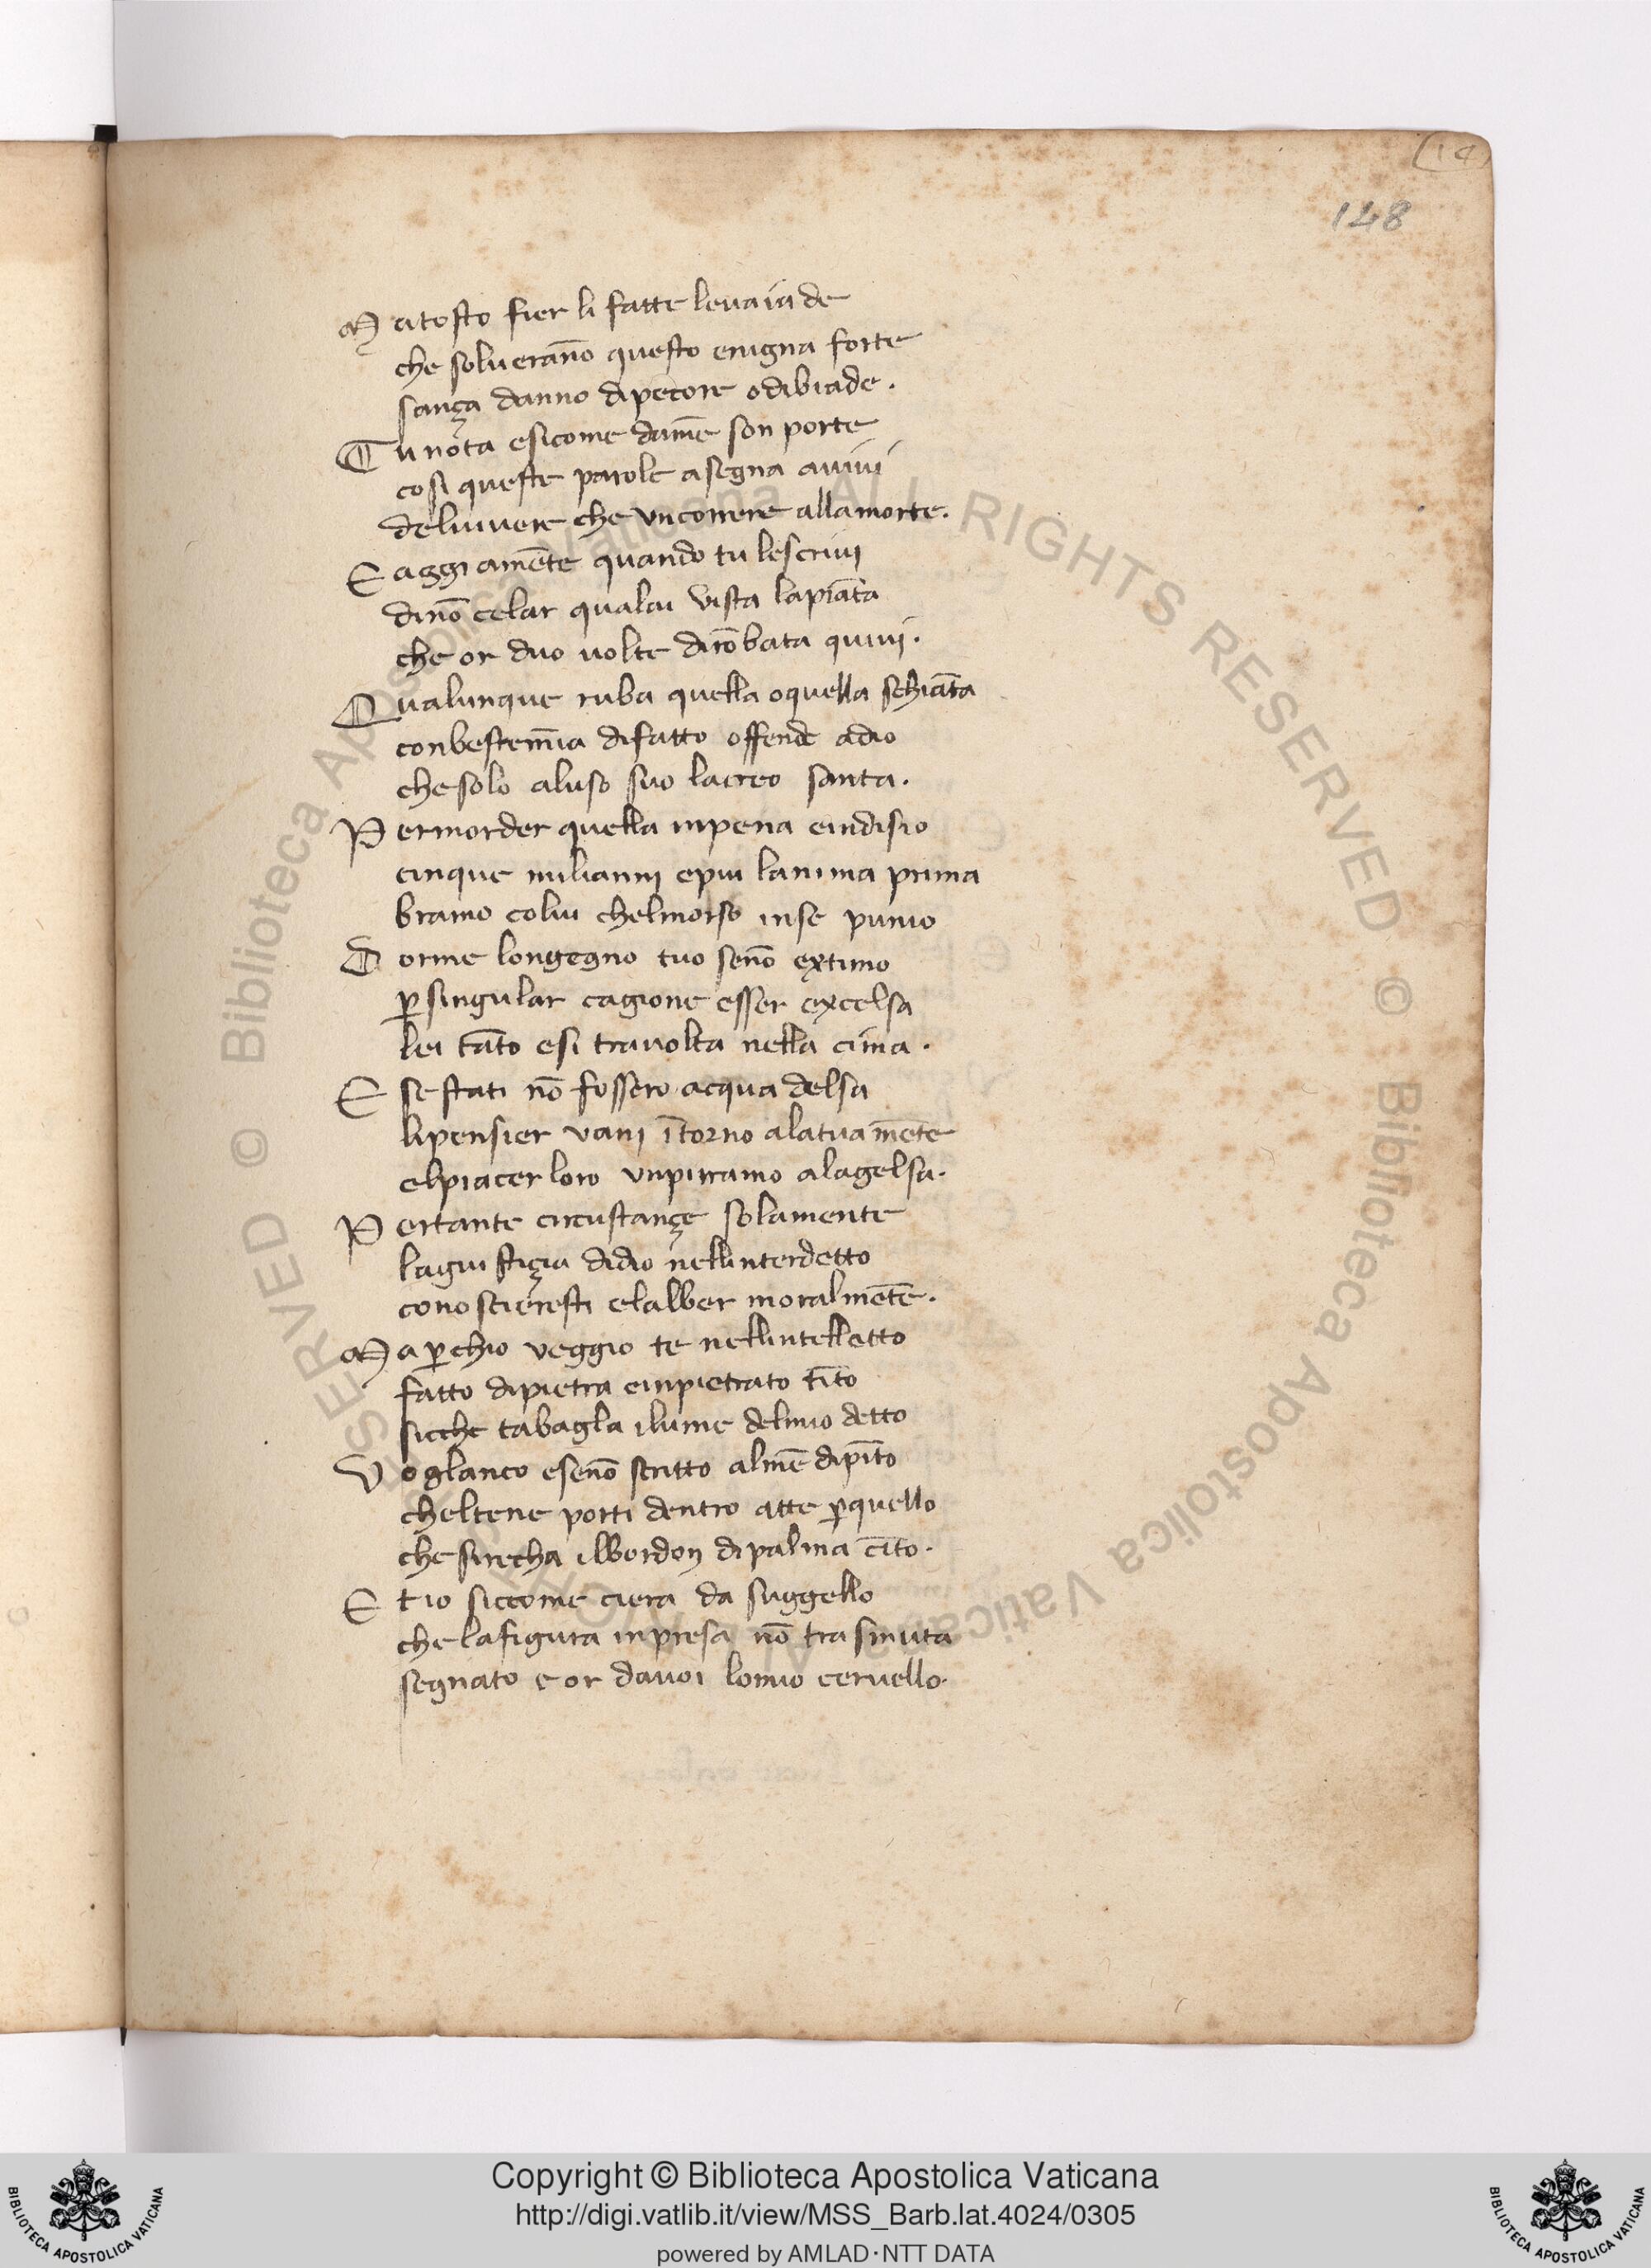 (14)
148
M a tosto fier li fatte leuaiade
che solueran̄o questo enigna forte
sança danno di pecore o di biade.
T u nota e sicome dam̄e son porte
cosi queste parole a segna auiui
del uiuere che un correre alla morte.
E aggi a mēte quando tu le scriui
di nō celar qual ai uista la piāta
che or duo uolte dirōbata quiui.
Q ualunque ruba quella o quella schiāta
con bestem̄ia di fatto offende adio
che solo a luso suo la creo santa.
P er morder quella in pena e in disio
cinque milianni e piu lanima prima
bramo colui chel morso in se punio
D orme longegno tuo se nō extimo
p̱ singular cagione esser excelsa
lei tāto e si trauolta nella cima.
E se stati nō fossero acqua delsa
li pensier uani ītorno a la tua mēte
el piacer loro un pirramo a la gelsa.
P er tante circustançe solamente
la giustiçia didio nellinterdetto
conoscieresti el alber moralmēte.
M a p̱chio ueggio te nellintelletto
fatto di pietra e inpietrato tīto
sicche tabagla il lume del mio detto
V oglanco e se nō scritto almē dipīto
chel te ne porti dentro atte p̱ quello
che si recha il bordon di palma cīto.
E t io siccome ciera da suggello
che la figura inpresa nō trasmuta
segnato e or da uoi lo mio ceruello.
© Biblioteca Apostolica Vaticana ALL RIGHTS RESERVED © Biblioteca Apostolica Vaticana ALL RIGHTS RESERVED
BIBLIOTECA APOSTOLICA VATICANA
Copyright © Biblioteca Apostolica Vaticana
http://digi.vatlib.it/view/MSS_Barb.lat.4024/0305
powered by AMLAD·NTT DATA
BIBLIOTECA APOSTOLICA VATICANA